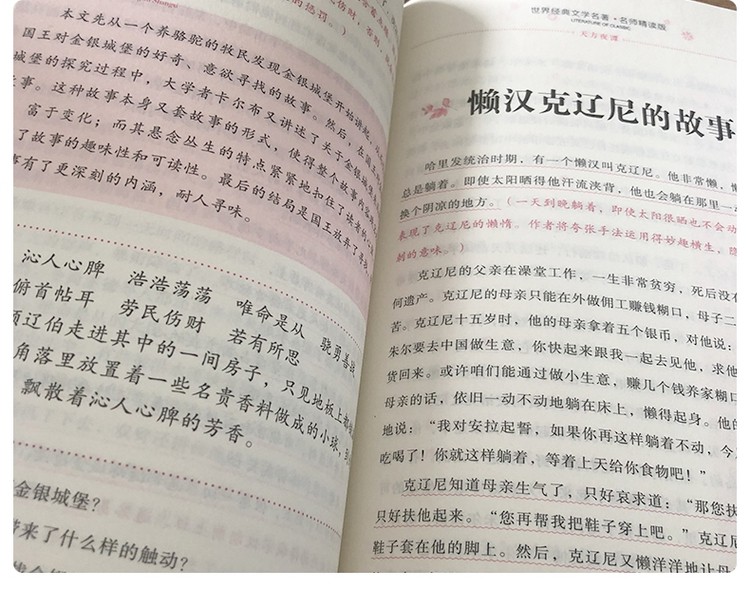 本文先从一个养骆驼的牧民发现金银城堡开始讲起
国王对金银城堡的好奇、意欲寻找的故事。然后，在国
城堡的探究过程中，大学者卡尔布又讲述了关于金银城
故事。这种故事本身又套故事的形式，使得整个故事内容
富于变化；而其悬念丛生的特点紧紧地扣住了读者的心
了故事的趣味性和可读性。最后的结局是国王放弃了寻找
事有了更深刻的内涵，耐人寻味。
沁人心脾 浩浩荡荡 唯命是从 骁勇善战
俯首帖耳 劳民伤财 若有所思
辽伯走进其中的一间房子，只见地板上都
角落里放置着一些名贵香料做成的小球，
飘散着沁人心脾的芳香。
金银城堡？
带来了什么样的触动？
世界经典文学名著·名师精读版
LITERATURE OF CLASSIC
天方夜谭
懒汉克辽尼的故事
哈里发统治时期，有一个懒汉叫克辽尼。他非常懒，懒
总是躺着。即使太阳晒得他汗流浃背，他也会躺在那里一动
换个阴凉的地方。（一天到晚躺着，即使太阳很晒也不会动
表现了克辽尼的懒惰。作者将夸张手法运用得妙趣横生，隐
制的意味。）
克辽尼的父亲在澡堂工作，一生非常贫穷，死后没有
何遗产。克辽尼的母亲只能在外做佣工赚钱糊口，母子二
苦。克辽尼十五岁时，他的母亲拿着五个银币，对他说：
朱尔要去中国做生意，你快起来跟我一起去见他，求他
货回来。或许咱们能通过做小生意，赚几个钱养家糊口
母亲的话，依旧一动不动地躺在床上，懒得起身。他的
地说：“我对安拉起誓，如果你再这样躺着不动，今
吃喝了！你就这样躺着，等着上天给你食物吧！”
克辽尼知道母亲生气了，只好哀求道：“那您扶
只好扶他起来。“您再帮我把鞋子穿上吧。”克辽尼
鞋子套在他的脚上。然后，克辽尼又懒洋洋地让母